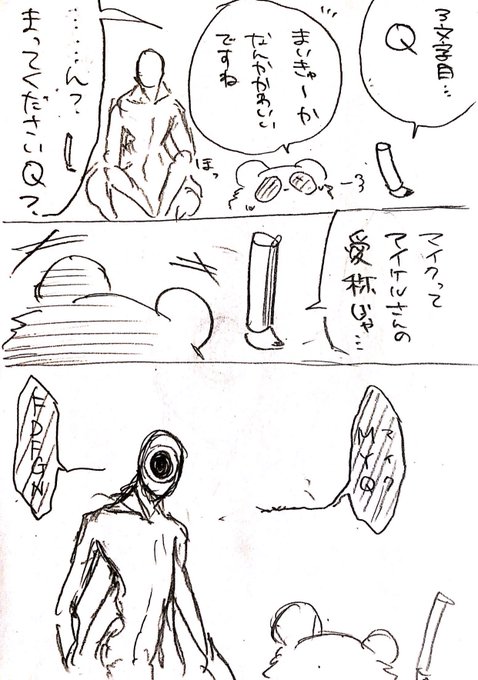 3文字目…
Q
まいきゅ〜か
なんかかわいい
ですね
ほっ
……ん?
まってくださいQ?
マイクって
アイケルさんの
愛称じゃ…
マイク
MYQ
FDFGN